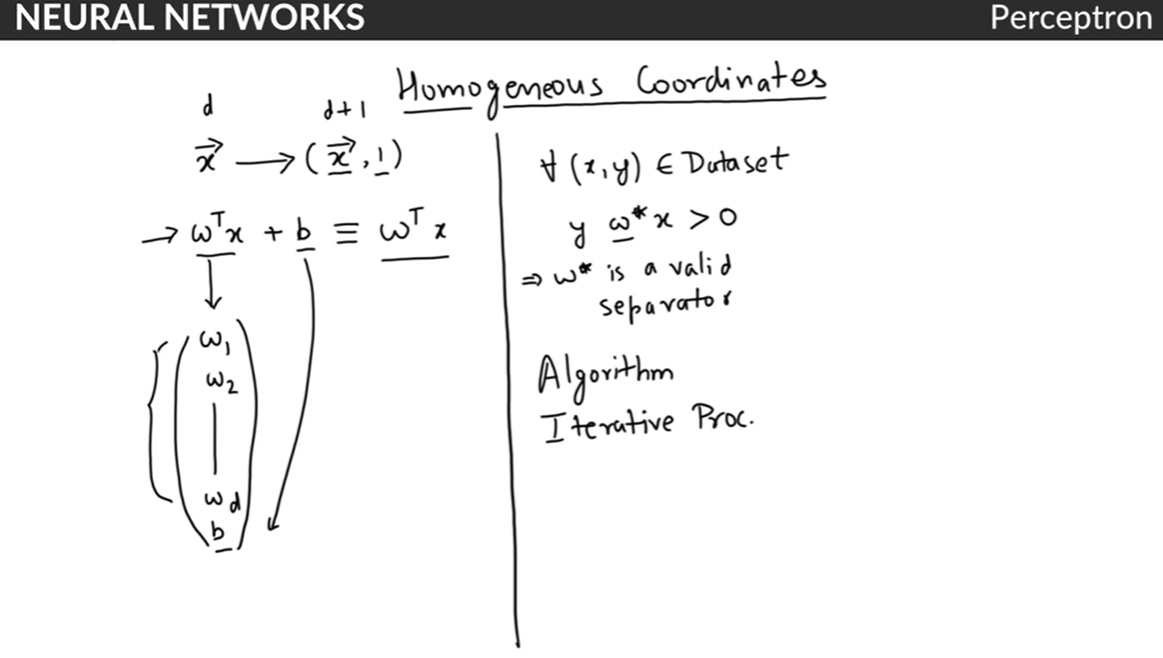 NEURAL NETWORKS
Perceptron
Homogeneous Coordinates
d
d+1
x⃗ ⟶ (x⃗, 1)
→ ωᵀx + b ≡ ωᵀx
ω₁
ω₂
ω_d
b
∀ (x, y) ∈ Dataset
y ω*x > 0
⇒ ω* is a valid
separator
Algorithm
Iterative Proc.